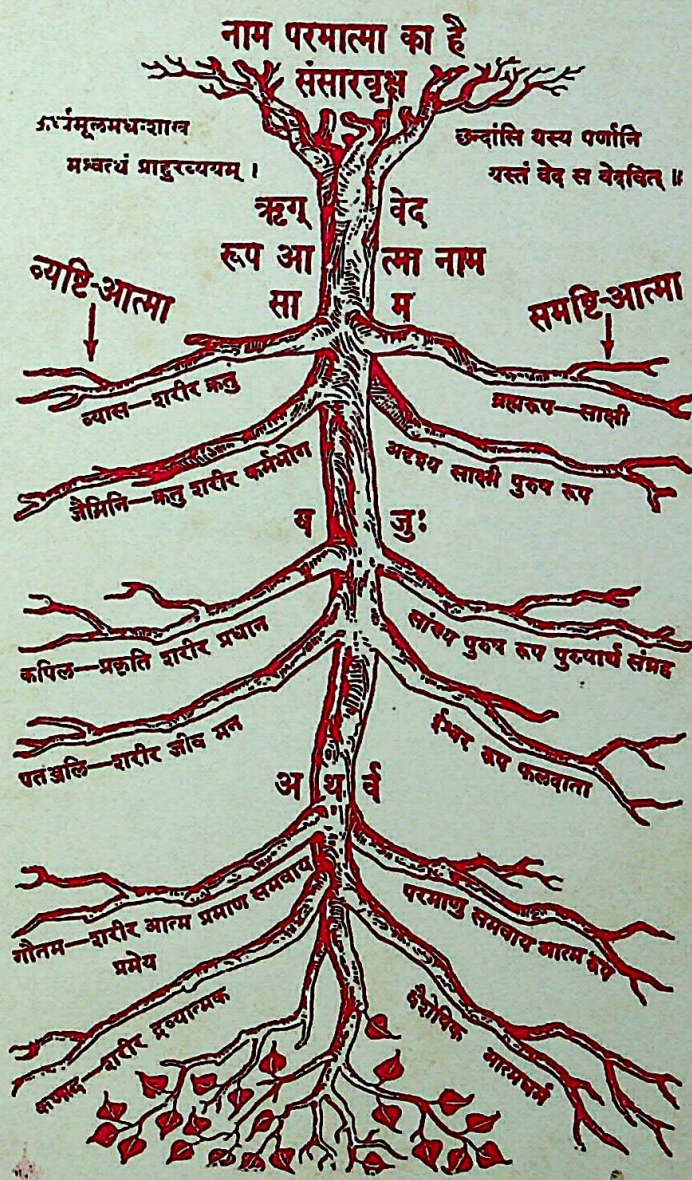 नाम परमात्मा का है
संसारवृक्ष
ऊर्ध्वमूलमधःशाख
मश्वत्थं प्राहुरव्ययम् ।
छन्दांसि यस्य पर्णानि
यस्तं वेद स वेदवित् ॥
ऋग् वेद
रूप आ त्मा नाम
सा म
व्यष्टि-आत्मा
समष्टि-आत्मा
व्यास—शरीर क्रतु
ब्रह्मरूप—साक्षी
जैमिनि—क्रतु शरीर कर्मभोग
अदृश्य साक्षी पुरुष रूप
य जुः
कपिल—प्रकृति शरीर प्रधान
सांख्य पुरुष रूप पुरुषार्थ संग्रह
पतञ्जलि—शरीर जीव मन
ईश्वर रूप फलदाता
अ थ र्व
गौतम—शरीर आत्म प्रमाण समवाय
प्रमेय
परमाणु समवाय आत्म रूप
कणाद—शरीर द्रव्यात्मक
वैशेषिक आत्मधर्म